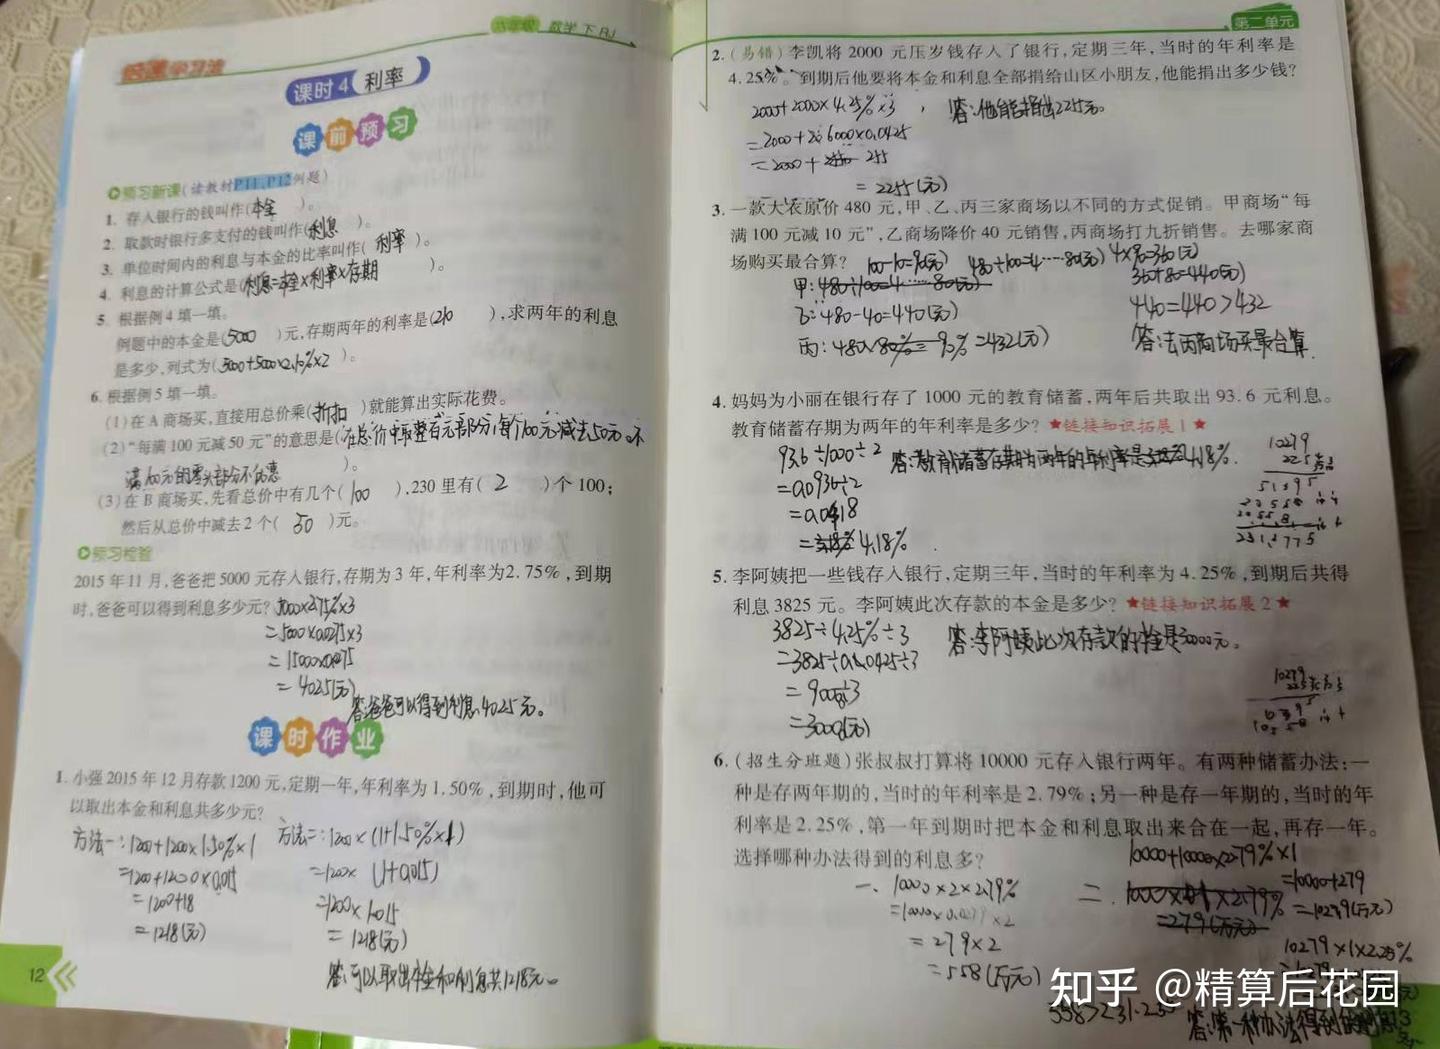 数学 下 RJ
课时4 利率
课前预习
预习新课(读教材P11、P12例题)
1. 存入银行的钱叫作(本金)。
2. 取款时银行多支付的钱叫作(利息)。
3. 单位时间内的利息与本金的比率叫作(利率)。
4. 利息的计算公式是(利息=本金×利率×存期)。
5. 根据例4填一填。
例题中的本金是(5000)元,存期两年的利率是(2.10),求两年的利息
是多少,列式为(5000+5000×2.10%×2)。
6. 根据例5填一填。
(1)在A商场买,直接用总价乘(折扣)就能算出实际花费。
(2)“每满100元减50元”的意思是(在总价中取整百元部分,每个100元减去50元。不
满100元的零头部分不优惠)。
(3)在B商场买,先看总价中有几个(100),230里有(2)个100;
然后从总价中减去2个(50)元。
预习检验
2015年11月,爸爸把5000元存入银行,存期为3年,年利率为2.75%,到期
时,爸爸可以得到利息多少元?5000×2.75%×3
=5000×0.0275×3
=15000×0.0275
=4025(元)
答:爸爸可以得到利息4025元。
课时作业
1. 小强2015年12月存款1200元,定期一年,年利率为1.50%,到期时,他可
以取出本金和利息共多少元?
方法一:1200+1200×1.50%×1 方法二:1200×(1+1.50%×1)
=1200+1200×0.015 =1200×(1+0.015)
=1200+18 =1200×1.015
=1218(元) =1218(元)
答:可以取出本金和利息共1218元。
12
第二单元
2. (易错)李凯将2000元压岁钱存入了银行,定期三年,当时的年利率是
4.25%。到期后他要将本金和利息全部捐给山区小朋友,他能捐出多少钱?
2000+2000×4.25%×3 答:他能捐出2255元。
=2000+6000×0.0425
=2000+255
=2255(元)
3. 一款大衣原价480元,甲、乙、丙三家商场以不同的方式促销。甲商场“每
满100元减10元”,乙商场降价40元销售,丙商场打九折销售。去哪家商
场购买最合算? 100-10=90(元) 480÷100=4……80(元) 4×90=360(元)
甲:480÷100=4……80(元) 360+80=440(元)
乙:480-40=440(元) 440=440>432
丙:480×90%=432(元) 答:去丙商场买最合算.
4. 妈妈为小丽在银行存了1000元的教育储蓄,两年后共取出93.6元利息。
教育储蓄存期为两年的年利率是多少?★链接知识拓展1★
93.6÷1000÷2 答:教育储蓄存期为两年的年利率是4.18%.
=0.0936÷2
=0.0418
=4.18%
10279
5. 李阿姨把一些钱存入银行,定期三年,当时的年利率为4.25%,到期后共得
利息3825元。李阿姨此次存款的本金是多少?★链接知识拓展2★
3825÷4.25%÷3 答:李阿姨此次存款的本金是30000元。
=3825÷0.0425÷3
=90000÷3
=30000(元)
10279
6. (招生分班题)张叔叔打算将10000元存入银行两年。有两种储蓄办法:一
种是存两年期的,当时的年利率是2.79%;另一种是存一年期的,当时的年
利率是2.25%,第一年到期时把本金和利息取出来合在一起,再存一年。
选择哪种办法得到的利息多?
10000+10000×2.79%×1
一、10000×2×2.79% 二、10000×1×2.79% =10000+279
=10000×0.0279×2 =279(万元) =10279(万元)
=279×2 10279×1×2.25%
=558(万元)
答:第一种办法得到的利息多
知乎 @精算后花园